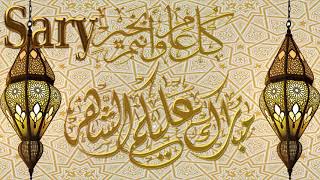 Sary
كل عام وأنتم بخير
مبارك عليكم الشهر